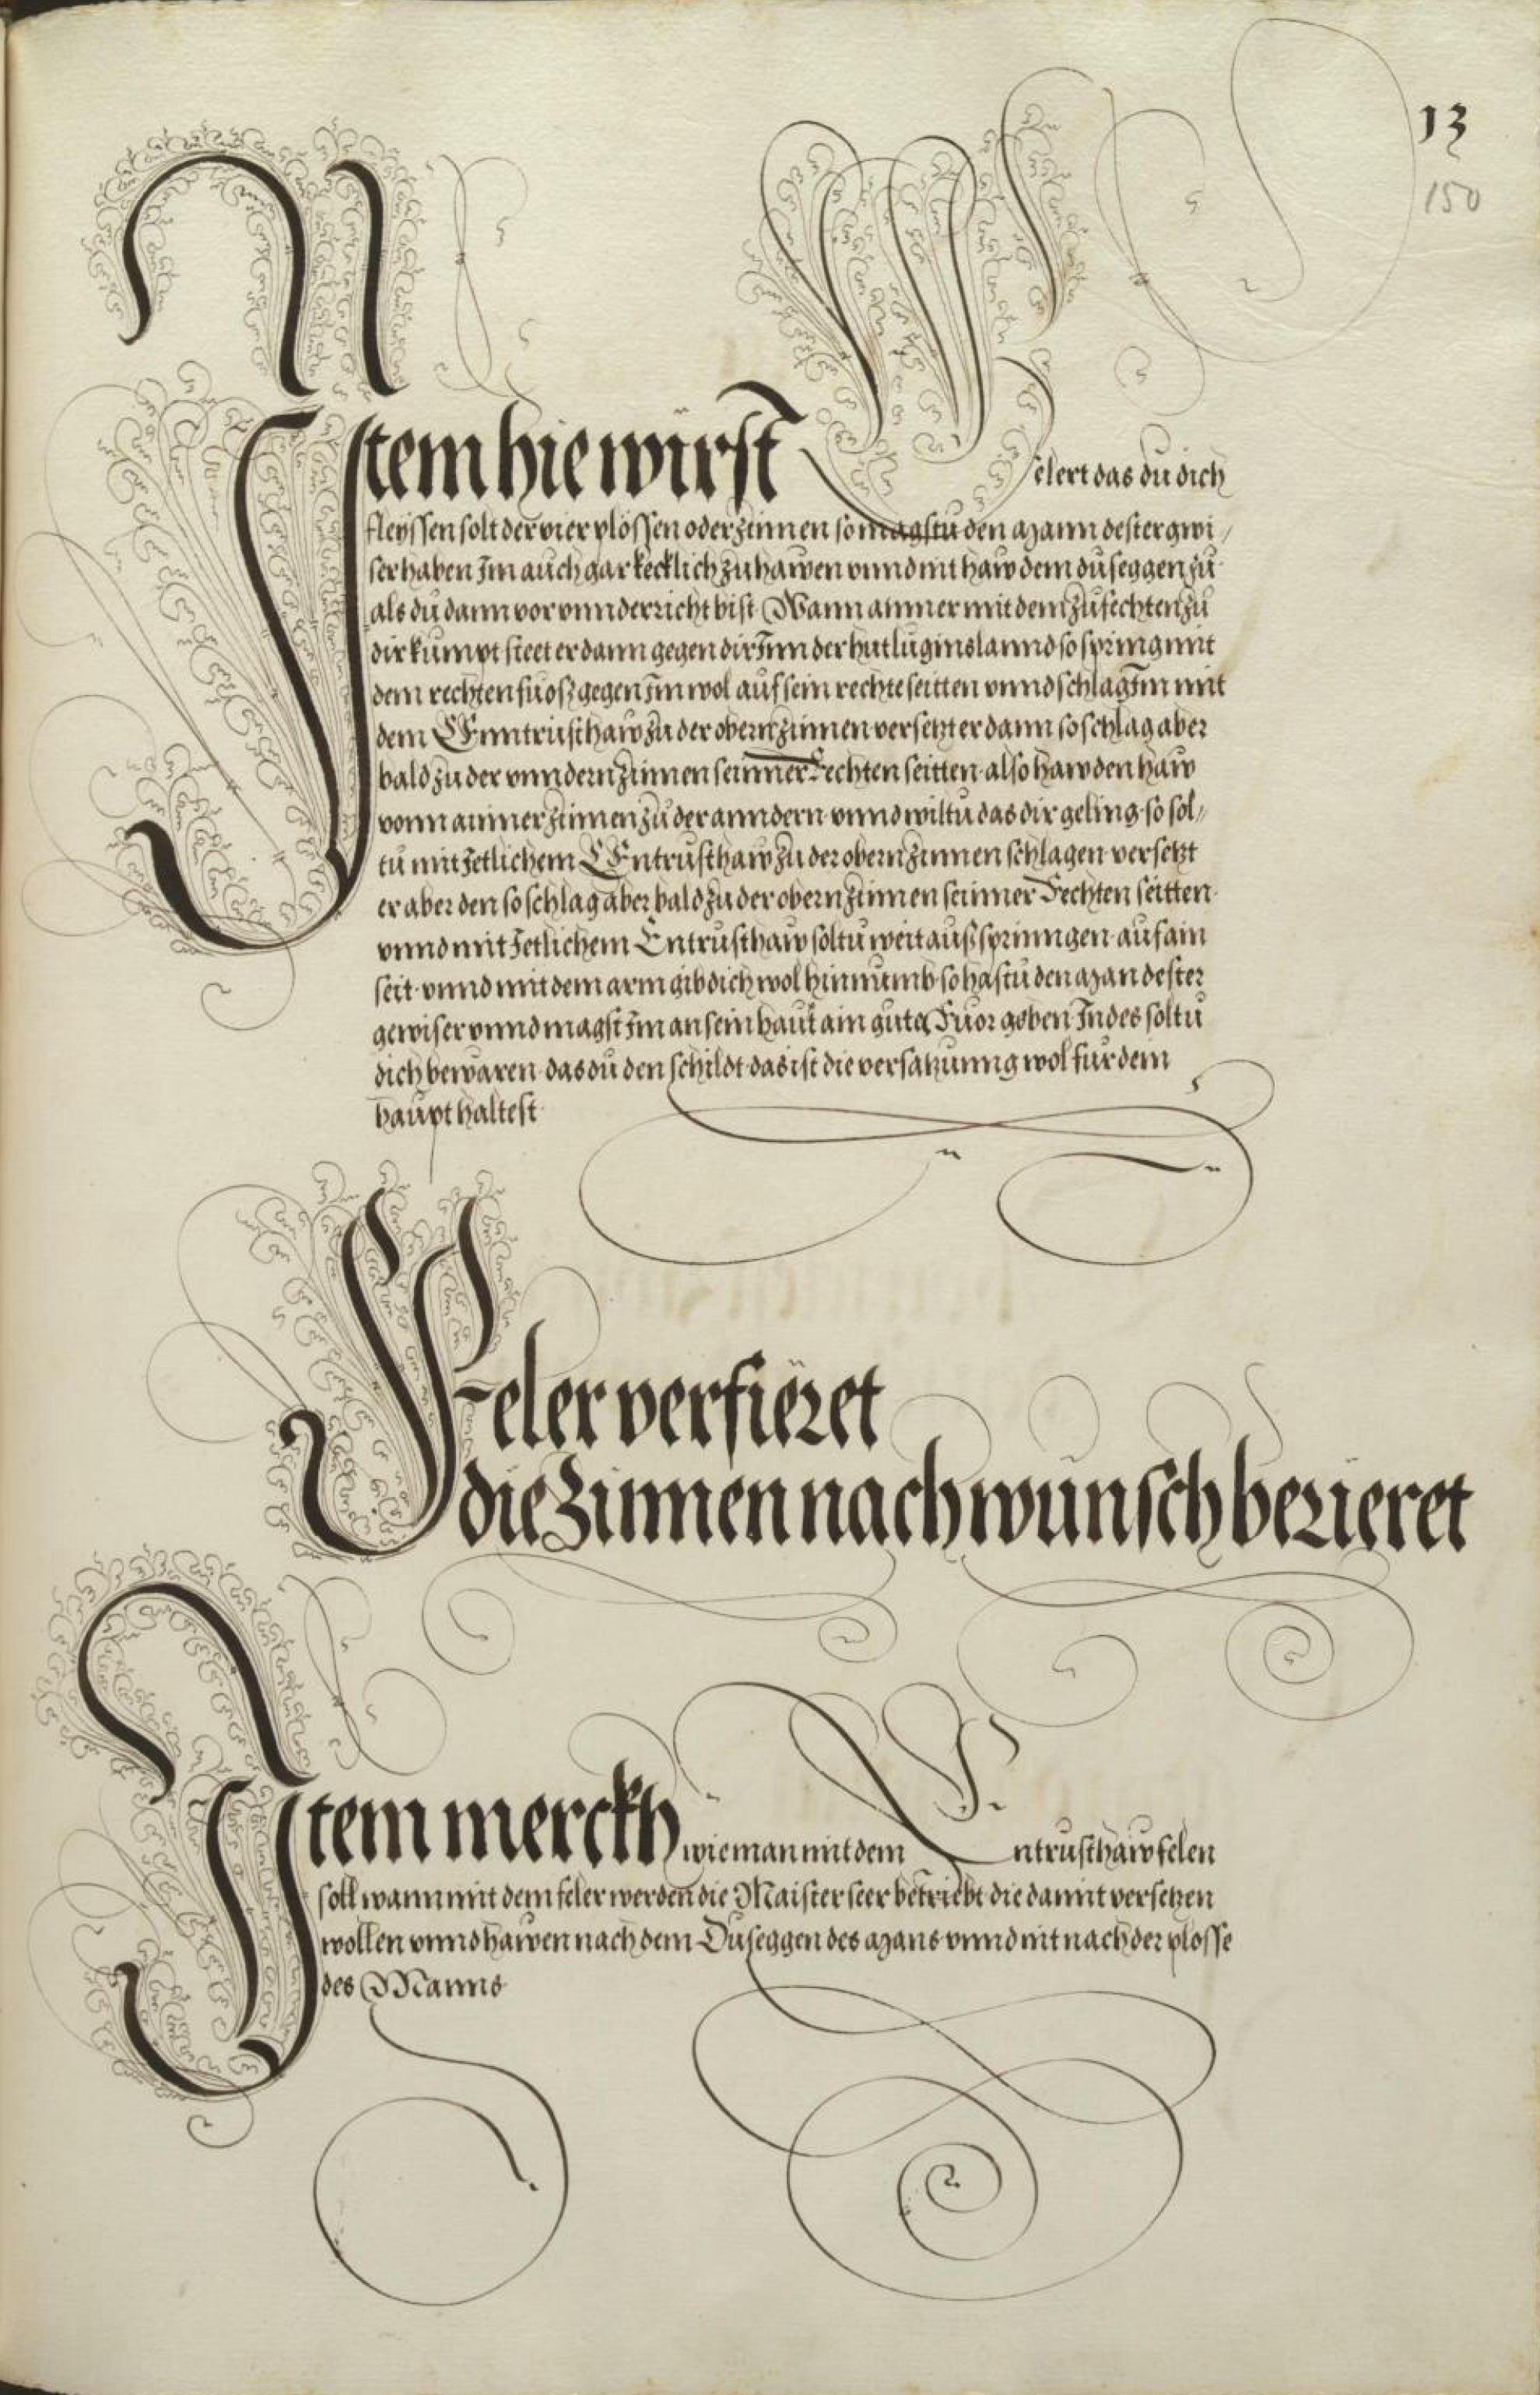 13
150
Item hie würst Gelert das du dich
fleyssen solt der vier plössen oder zinnen so magstu den Mann dester gwi/
ser haben Im auch gar kecklich zu hawen vnnd nit haw dem duseggen zu
als du dann vor vnnderricht bist Wann ainner mit dem zufechten zu
dir kumpt steet er dann gegen dir Inn der hut luginslannd so spring mit
dem rechten fuosz gegen Im wol auf sein rechte seitten vnnd schlag Im mit
dem Enntrusthaw zu der obern zinnen versetzt er dann so schlag aber
bald zu der vnndern zinnen seinner Rechten seitten also haw den haw
vonn ainner zinnen zu der anndern vnnd wiltu das dir geling so sol/
tu mit Jetlichem Entrusthaw zu der obern zinnen schlagen versetzt
er aber den so schlag aber bald zu der obern zinnen seinner Rechten seitten
vnnd mit Jetlichem Entrusthaw soltu weit auß sprinngen auf ain
seit vnnd mit dem arm gib dich wol hinnumb so hastu den Man dester
gewiser vnnd magst Im an sein haut ain gute Fuor geben Indes soltu
dich bewaren das du den schildt das ist die versatzunng wol fur dein
haupt haltest
Feler verfieret
die Zinnen nach wunsch berieret
Item merckh wie man mit dem Entrusthaw felen
soll wann mit dem feler werden die Maister seer betriebt die damit versetzen
wollen vnnd hawen nach dem Duseggen des Mans vnnd nit nach der plosse
des Manns